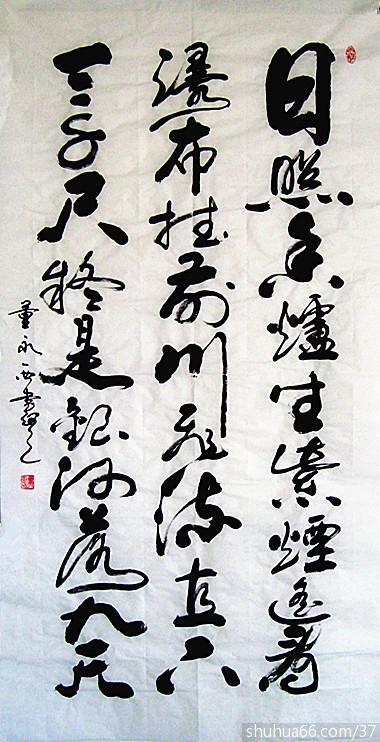 日照香爐生紫煙遙看
瀑布挂前川飛流直下
三千尺疑是銀河落九天
董永西書
shuhua66.com/37